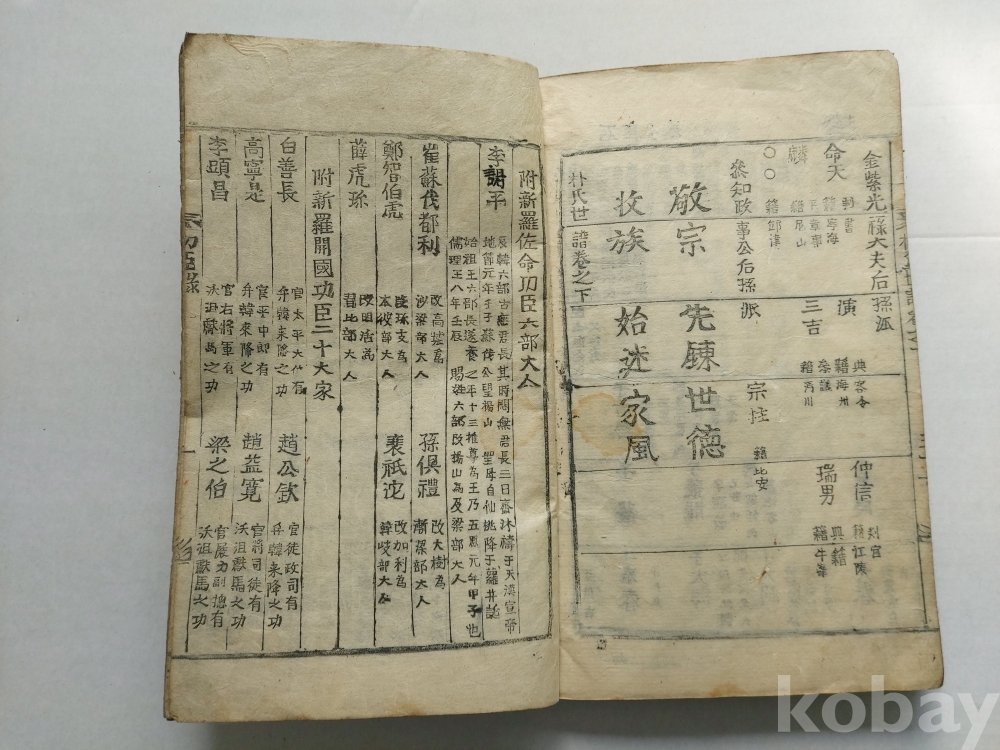 金紫光祿大夫后孫派
命天
籍寧海
平章事
麟
籍
○○
籍
參知政事公后孫派
演
典客令
籍海州
三吉
籍
宗柱
籍比安
仲信
籍江陵
瑞男
典籍
籍牛峯
敬宗 先鍊世德
收族 始述家風
朴氏世譜卷之下
附新羅佐命功臣六部大人
李謁平
辰韓六部古無君長其時閼無君長三日齋沐禱于天漢宣帝
地節元年子于蘇伐公望楊山 聖母自仙桃降于蘿井誕
始祖王六部長送養之年十三推尊為王乃五鳳元年甲子也
儒理王八年壬辰 賜姓六部改楊山為及梁部大人
崔蘇伐都利
改高墟為
沙梁部大人
孫俱禮
改大樹為
漸梁部大人
鄭智伯虎
改珍支為
本彼部大人
裵祇沱
改加利為
韓岐部大人
薛虎珍
改明活為
習比部大人
附新羅開國功臣二十大家
白善長
官太平大仆有
弁韓來降之功
趙公欽
官徒政司有
弁韓來降之功
高寧是
官平中郎有
弁韓來降之功
趙益寬
官將司徒有
沃沮獻馬之功
李頭昌
官右將軍有
沃沮獻馬之功
梁之伯
官展力副摠有
沃沮獻馬之功
功臣錄
一
kobay